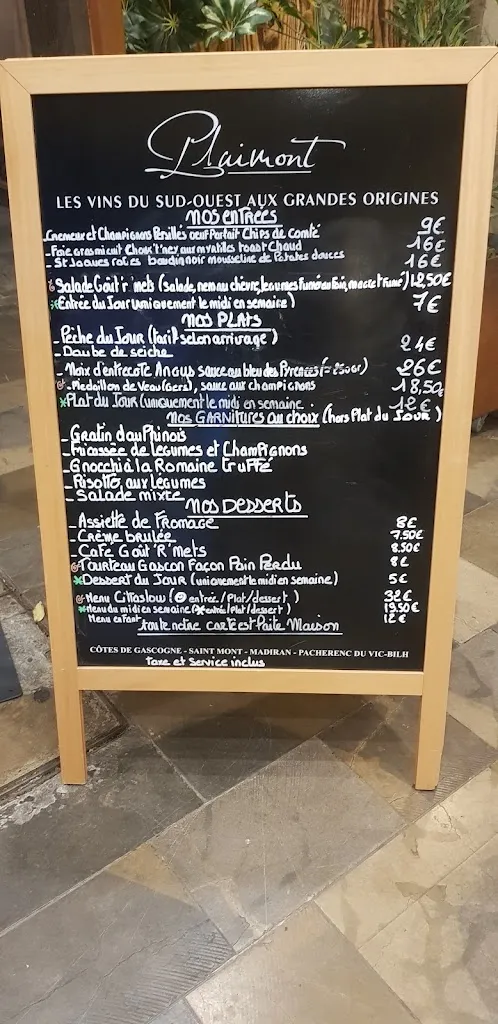 Plaimont
LES VINS DU SUD-OUEST AUX GRANDES ORIGINES
NOS ENTRÉES
- Cremeux et Champignons Persillés oeuf Parfait Chips de Comté 9€
- Foie gras mi cuit Chout't'ney aux myrtilles toast Chaud 16€
- St Jaques roties boudin noir mousseline de Patates douces 16€
Salade Goût'r'mets (salade, nem au chèvre, legumes Fumé au Foin, magret Fumé) 12,50€
*Entrée du Jour (uniquement le midi en semaine) 7€
NOS PLATS
- Pêche du Jour (tarif selon arrivage)
- Daube de seiche 24€
- Noix d'entrecote Angus sauce au bleu des Pyrenees (≃ 250gr) 26€
- Medaillon de Veau (Gers), sauce aux champignons 18,50€
*Plat du Jour (uniquement le midi en semaine 12€
NOS GARNITURES au choix (hors Plat du Jour)
- Gratin dauphinois
- Fricassée de légumes et Champignons
- Gnocchi à la Romaine truffé
- Risotto aux légumes
- Salade mixte
NOS DESSERTS
- Assiette de Fromage 8€
- Crème brulée 7.50€
- Café Goût'R'Mets 8.50€
Tourteau Gascon Façon Pain Perdu 8€
*Dessert du Jour (uniquement le midi en semaine) 5€
Menu Citaslow (entrée / Plat / dessert) 32€
*Menu du midi en semaine (*entrée / Plat / dessert) 19.50€
Menu enfant 12€
toute notre carte est Faite Maison
CÔTES DE GASCOGNE - SAINT MONT - MADIRAN - PACHERENC DU VIC-BILH
Taxe et Service inclus